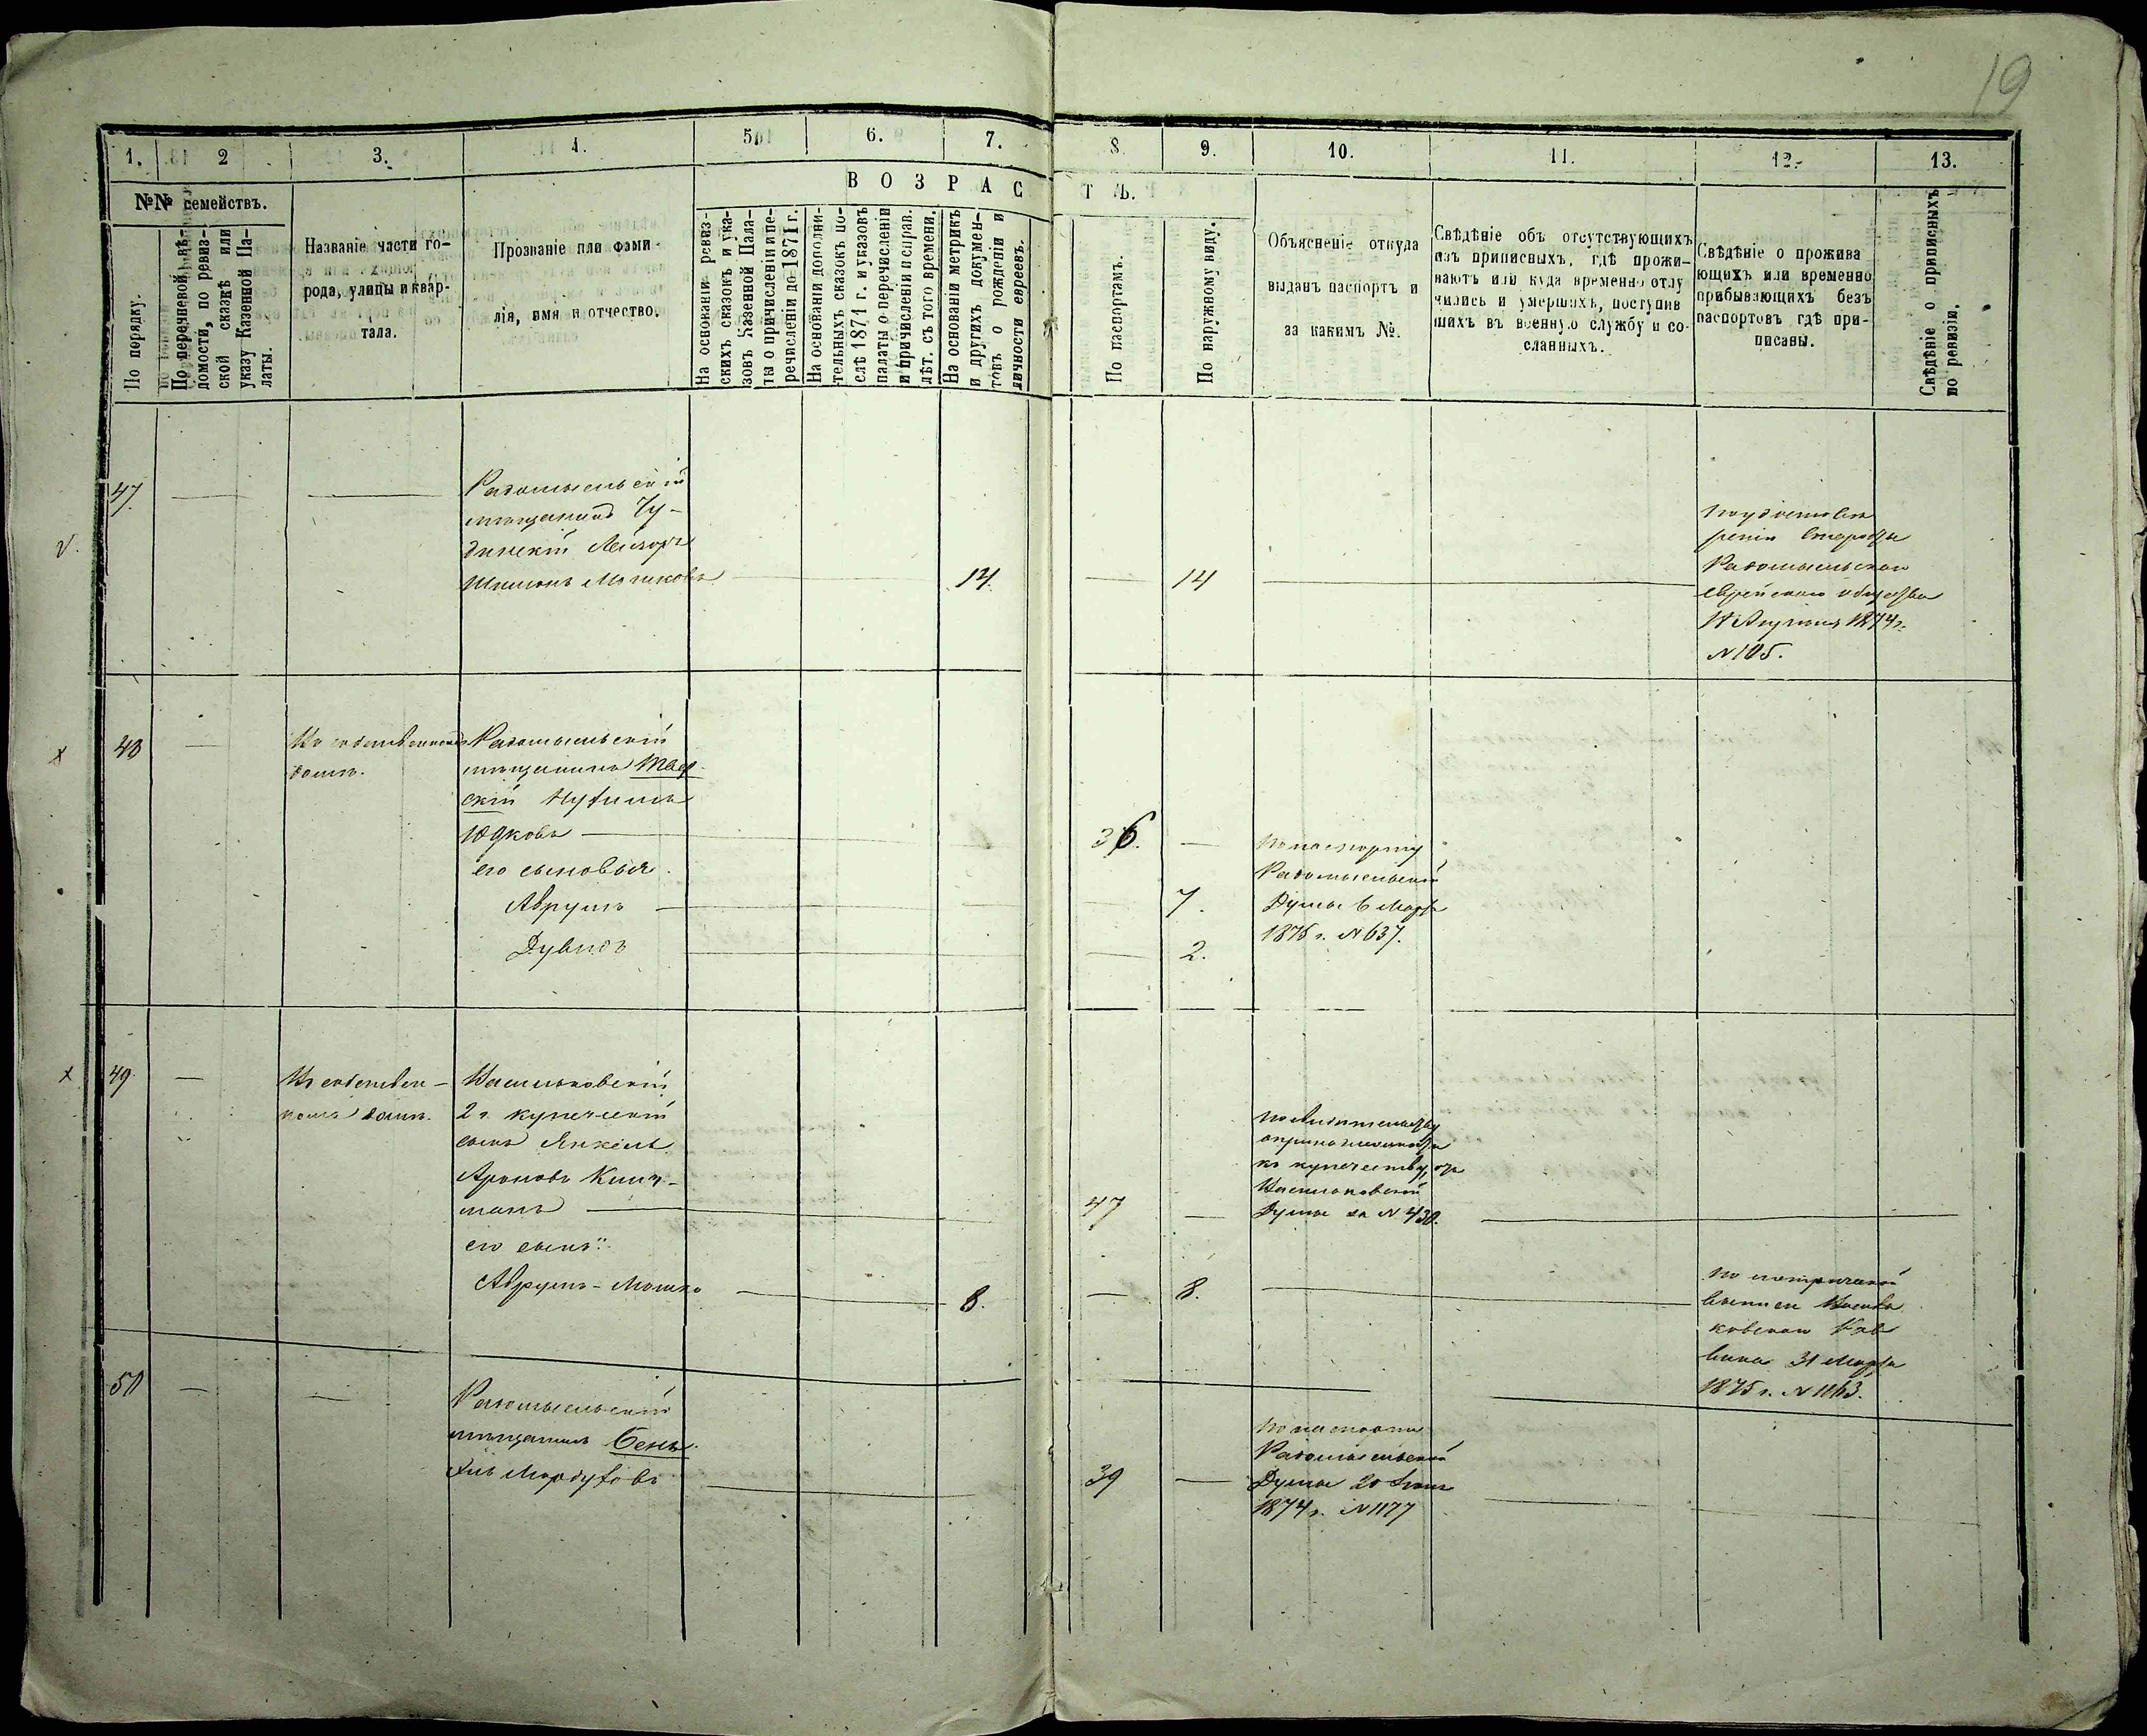 19
1. 2 3. 4. 5 6. 7. 8. 9. 10. 11. 12. 13.
№№ семействъ.
В О З Р А С Т Ъ.
По порядку.
По перечневой вѣ-
домости, по ревиз-
ской сказкѣ или
указу Казенной Па-
латы.
Названіе части го-
рода, улицы и квар-
тала.
Прозваніе или фами-
лія, имя и отчество.
На основаніи ревиз-
скихъ сказокъ и ука-
зовъ Казенной Пала-
ты о причисленіи и пе-
речисленіи до 1871 г.
На основаніи дополни-
тельныхъ сказокъ по-
слѣ 1871 г. и указовъ
палаты о перечисленіи
и причисленіи и справ.
лѣт. съ того времени.
На основаніи метрикъ
и другихъ докумен-
товъ о рожденіи и
личности евреевъ.
По паспортамъ.
По наружному виду.
Объясненіе откуда
выданъ паспортъ и
за какимъ №.
Свѣдѣніе объ отсутствующихъ
изъ приписныхъ, гдѣ прожи-
ваютъ или куда временно отлу
чились и умершихъ, поступив
шихъ въ военную службу и со-
сланныхъ.
Свѣдѣніе о прожива
ющихъ или временно
прибывающихъ безъ
паспортовъ гдѣ при-
писаны.
Свѣдѣніе о приписныхъ
по ревизіи.
47
Радомысльскій
мѣщанинъ Чу-
динскій Лейзоръ
Шлиомъ Мошковъ
14.
14
по удостове
ренію старосты
Радомысльскаго
еврейскаго общества
1874 г.
N 105.
48
Въ собственномъ
домѣ.
Радомысльскій
мѣщанинъ Твер
скій Нухимъ
Юдковъ
36.
его сыновья
Аврумъ
7.
Дувидъ
2.
по паспорту
Радомысльской
Думы 6 Марта
1875 г. N 637.
49.
Въ собствен-
номъ домѣ.
Васильковскій
2 г. купеческій
сынъ Янкель
Ароновъ
манъ
47
его сынъ:
Аврумъ-Мошко
8.
8.
по свидѣтельству
къ купечеству,
Васильковской
Думы за N 430.
по метрической
выписи Василь
ковскаго Рав
вина 31 Марта
1875 г. N 1163.
50
Радомысльскій
мѣщанинъ
Мордуховъ
39
по паспорту
Радомысльской
Думы 20
1874 г. N 1177